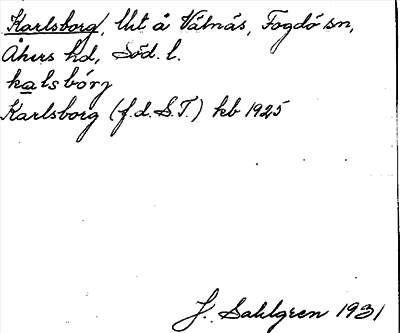 Karlsborg, lht å Vätnäs, Fogdö sn,
Åkers hd, Söd. l.
kalsbórj
Karlsborg (f.d.S.T.) kb 1925
J. Sahlgren 1931